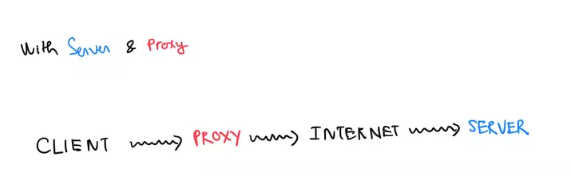 With Server & Proxy
CLIENT → PROXY → INTERNET → SERVER